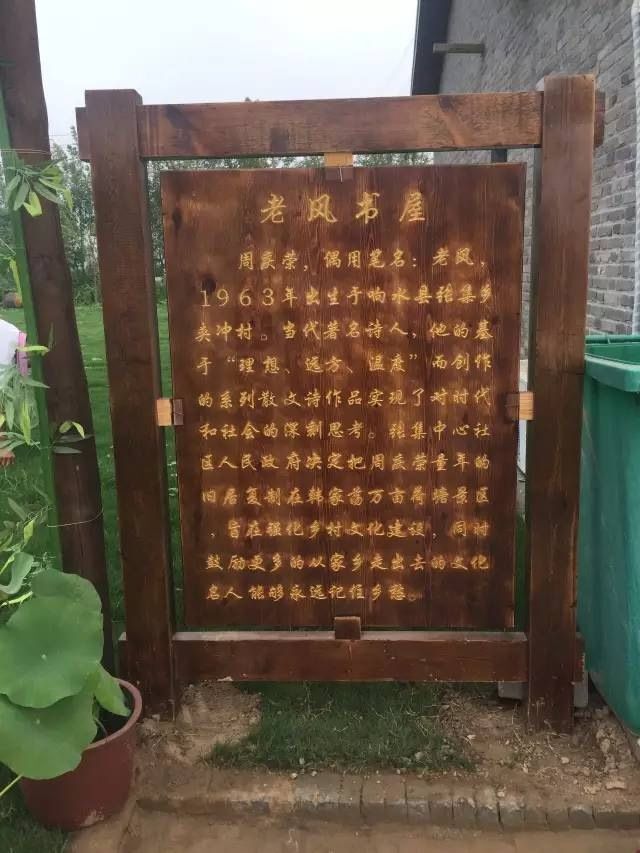 老风书屋
周庆荣，偶用笔名：老风，
1963年出生于响水县张集乡
奕冲村。当代著名诗人，他的基
于“理想、远方、温度”而创作
的系列散文诗作品实现了对时代
和社会的深刻思考。张集中心社
区人民政府决定把周庆荣童年的
旧居复制在韩家荡万亩荷塘景区
，旨在强化乡村文化建设，同时
鼓励更多的从家乡走出去的文化
名人能够永远记住乡愁。